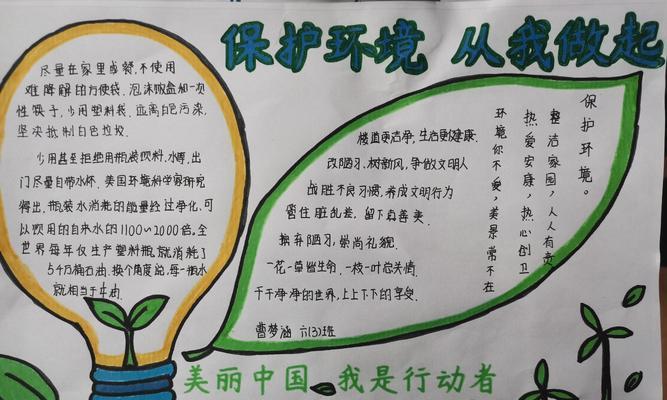 保护环境 从我做起
尽量在家里或餐,不使用
难降解的方便袋,泡沫饭盒和一次
性筷子,少用塑料袋,远离白色污染,
坚决抵制白色垃圾.
少用甚至拒绝用瓶装饮料.水等,出
门尽量自带水杯.美国环境科学家研究
得出,瓶装水消耗的能量经过净化,可
以饮用的自来水的1100~2000倍,全
世界每年仅生产塑料瓶就消耗了
5千万桶石油.换个角度说,每一瓶水
就相当于
楼道更洁净,生活更健康.
改陋习、树新风,争做文明人
战胜不良习惯,养成文明行为
管住脏乱差,留下真善美.
摈弃陋习,崇尚礼貌.
一花一草皆生命.一枝一叶总关情.
干干净净的世界,上上下下的享受.
曹梦涵 六(3)班
保护环境。
整洁家园,人人有责
热爱安康,热心创卫
环境你不爱,美景常不在
美丽中国 我是行动者